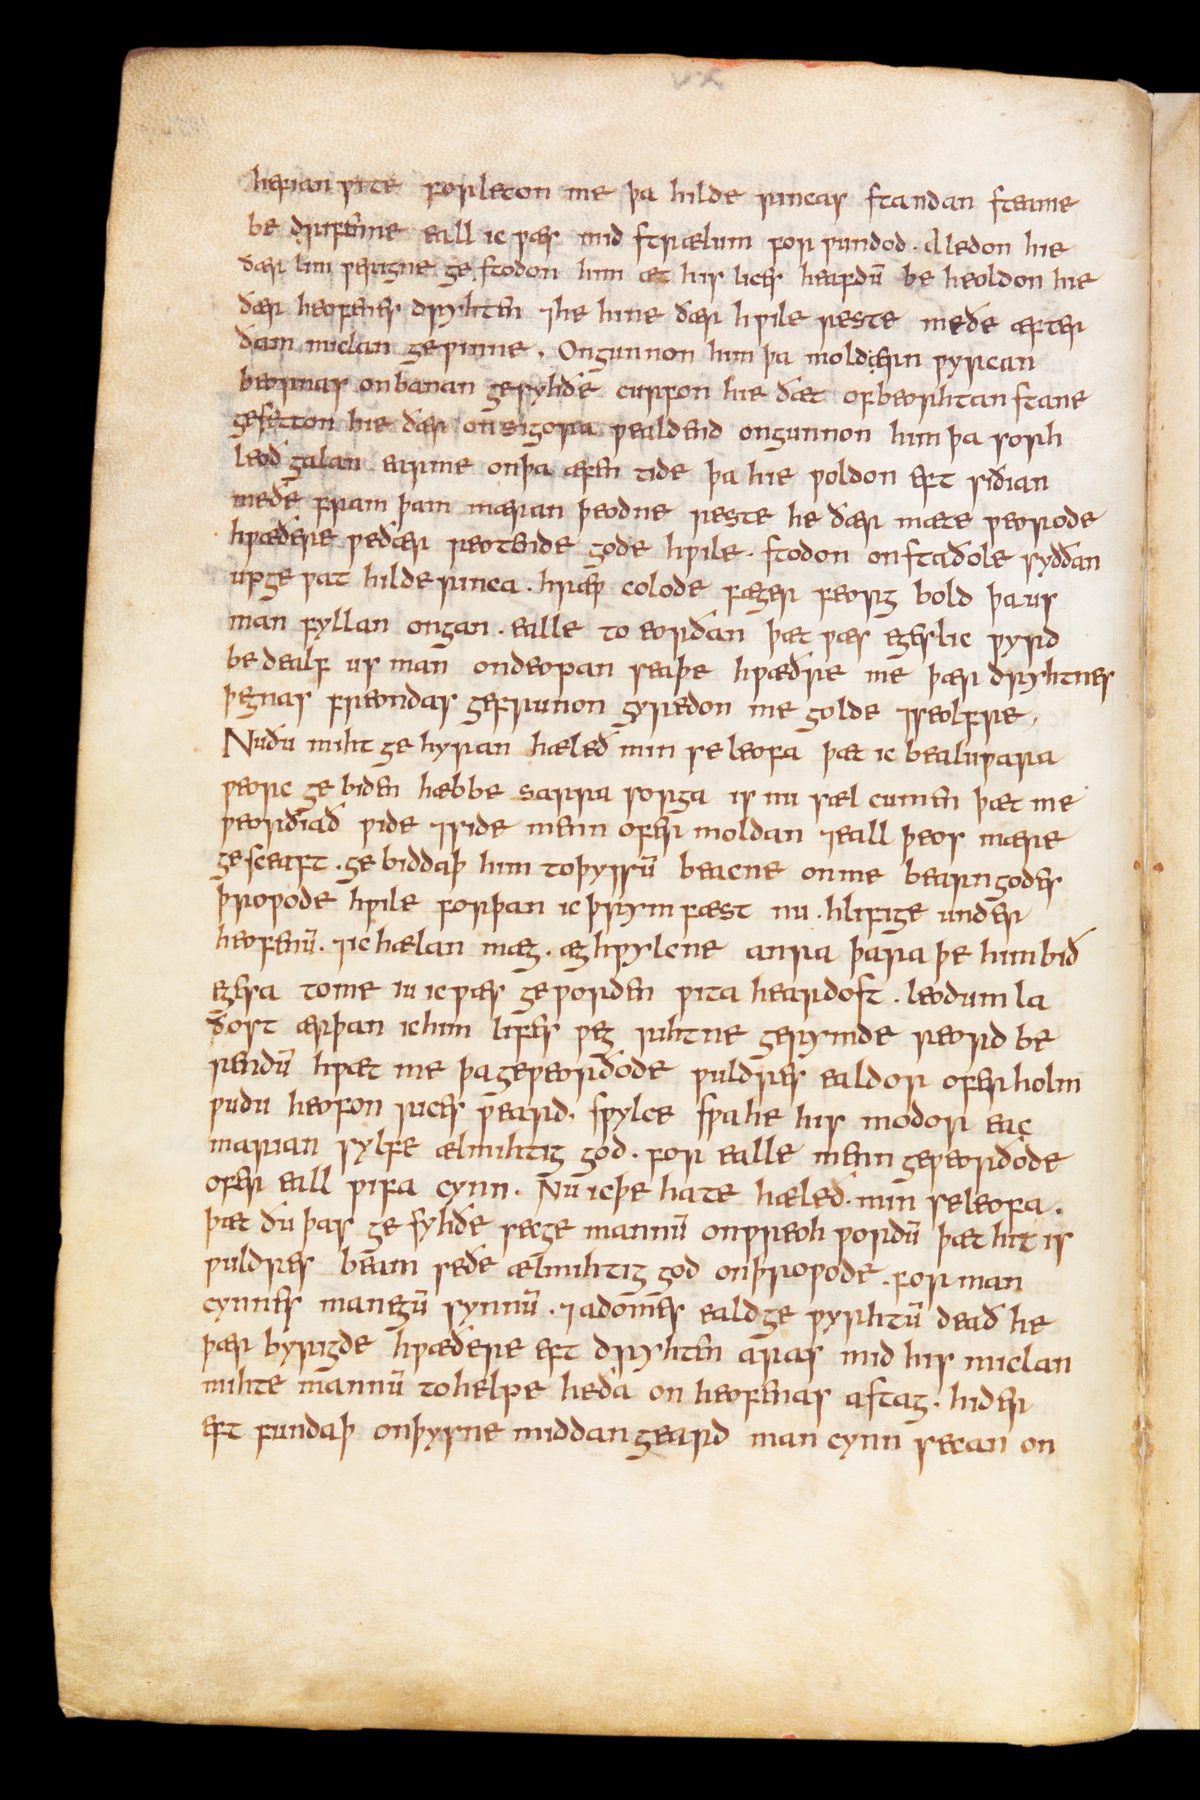 hefian ƿite forleton me þa hilde rincas standan steame
be drifenne eall ic ƿæs mid strælum for ƿundod. Aledon hie
ðær lim ƿerigne ge stodon him æt his lices heafdū be heoldon hie
ðær heofenes dryhten ⁊he hine ðær hƿile reste meðe æfter
ðam miclan geƿinne. Ongunnon him þa moldærn ƿyrcan
beornas onbanan gesyhðe curfon hie ðæt ofbeorhtan stane
gesetton hie ðær onsigora ƿealdend ongunnon him þa sorh
leoð galan earme onþa æfen tide þa hie ƿoldon eft siðian
meðe fram þam mæran þeodne reste he ðær mæte ƿeorode
hƿæðere ƿeðær reotende gode hƿile. stodon onstaðole syððan
upge ƿat hilderinca. hræƿ colode fæger feorg bold þaus
man fyllan ongan. ealle to eorðan þæt ƿæs egeslic ƿyrd
be dealf us man ondeopan seaþe hƿæðre me þær dryhtnes
þegnas freondas gefrunon gyredon me golde ⁊seolfre.
Nuðu miht ge hyran hæleð min se leofa þæt ic bealuƿara
ƿeorc ge biden hæbbe sarra sorga is nu sæl cumen þæt me
ƿeorðiað ƿide ⁊side menn ofer moldan ⁊eall þeos mære
gesceaft. ge biddaþ him toþyssū beacne onme bearngodes
þroƿode hƿile forþan ic þrym fæst nu. hlifige under
heofenū. ⁊ic hælan mæg. æghƿylcne anra þara þe himbið
egesa tome iu ic ƿæs geƿorden ƿita heardost. leodum la
ðost ærþan ichim lifes ƿeg rihtne gerymde reord be
rendū hƿæt me þageƿeorðode ƿuldres ealdor oferholm
ƿudu heofon rices ƿeard. sƿylce sƿahe his modor eac
marian sylfe ælmihtig god. for ealle menn geƿeorðode
ofer eall ƿifa cynn. Nu icþe hate hæleð. min seleofa.
þæt ðu þas ge syhðe secge mannū onƿreoh ƿordū þæt hit is
ƿuldres beam seðe ælmihtig god onþroƿode. for man
cynnes manegū synnū. ⁊adomes ealdge ƿyrhtū deað he
þær byrigde hƿæðere eft dryhten aras mid his miclan
mihte mannū tohelpe heða on heofenas astag. hider
eft fundaþ onþysne middan geard man cynn secan on